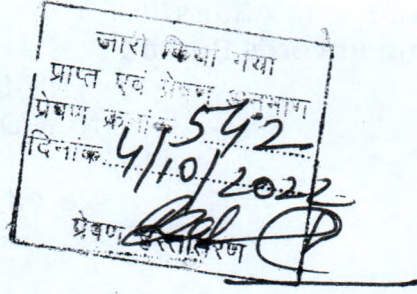 जारी किया गया
प्राप्त एवं प्रेषण अनुभाग
प्रेषण क्रमांक 542
दिनांक 4/10/2022
प्रेषण हस्तांतरण